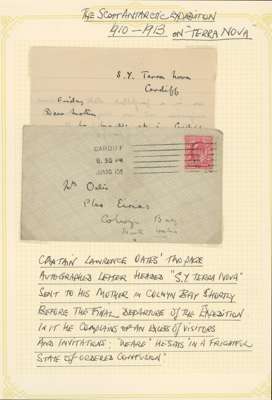 THE SCOTT ANTARCTIC EXPEDITION
1910 - 1913 on "TERRA NOVA"
S.Y. Terra Nova
Cardiff
Friday
Dear Mother
CARDIFF
Mrs Oates
Plas Eirias
Colwyn Bay
North Wales
CAPTAIN LAWRENCE OATES' TWO PAGE
AUTOGRAPHED LETTER HEADED "S.Y. TERRA NOVA"
SENT TO HIS MOTHER IN COLWYN BAY SHORTLY
BEFORE THE FINAL DEPARTURE OF THE EXPEDITION
IN IT HE COMPLAINS OF AN EXCESS OF VISITORS
AND INVITATIONS. "WE ARE" HE SAYS "IN A FRIGHTFUL
STATE OF ORDERED CONFUSION"